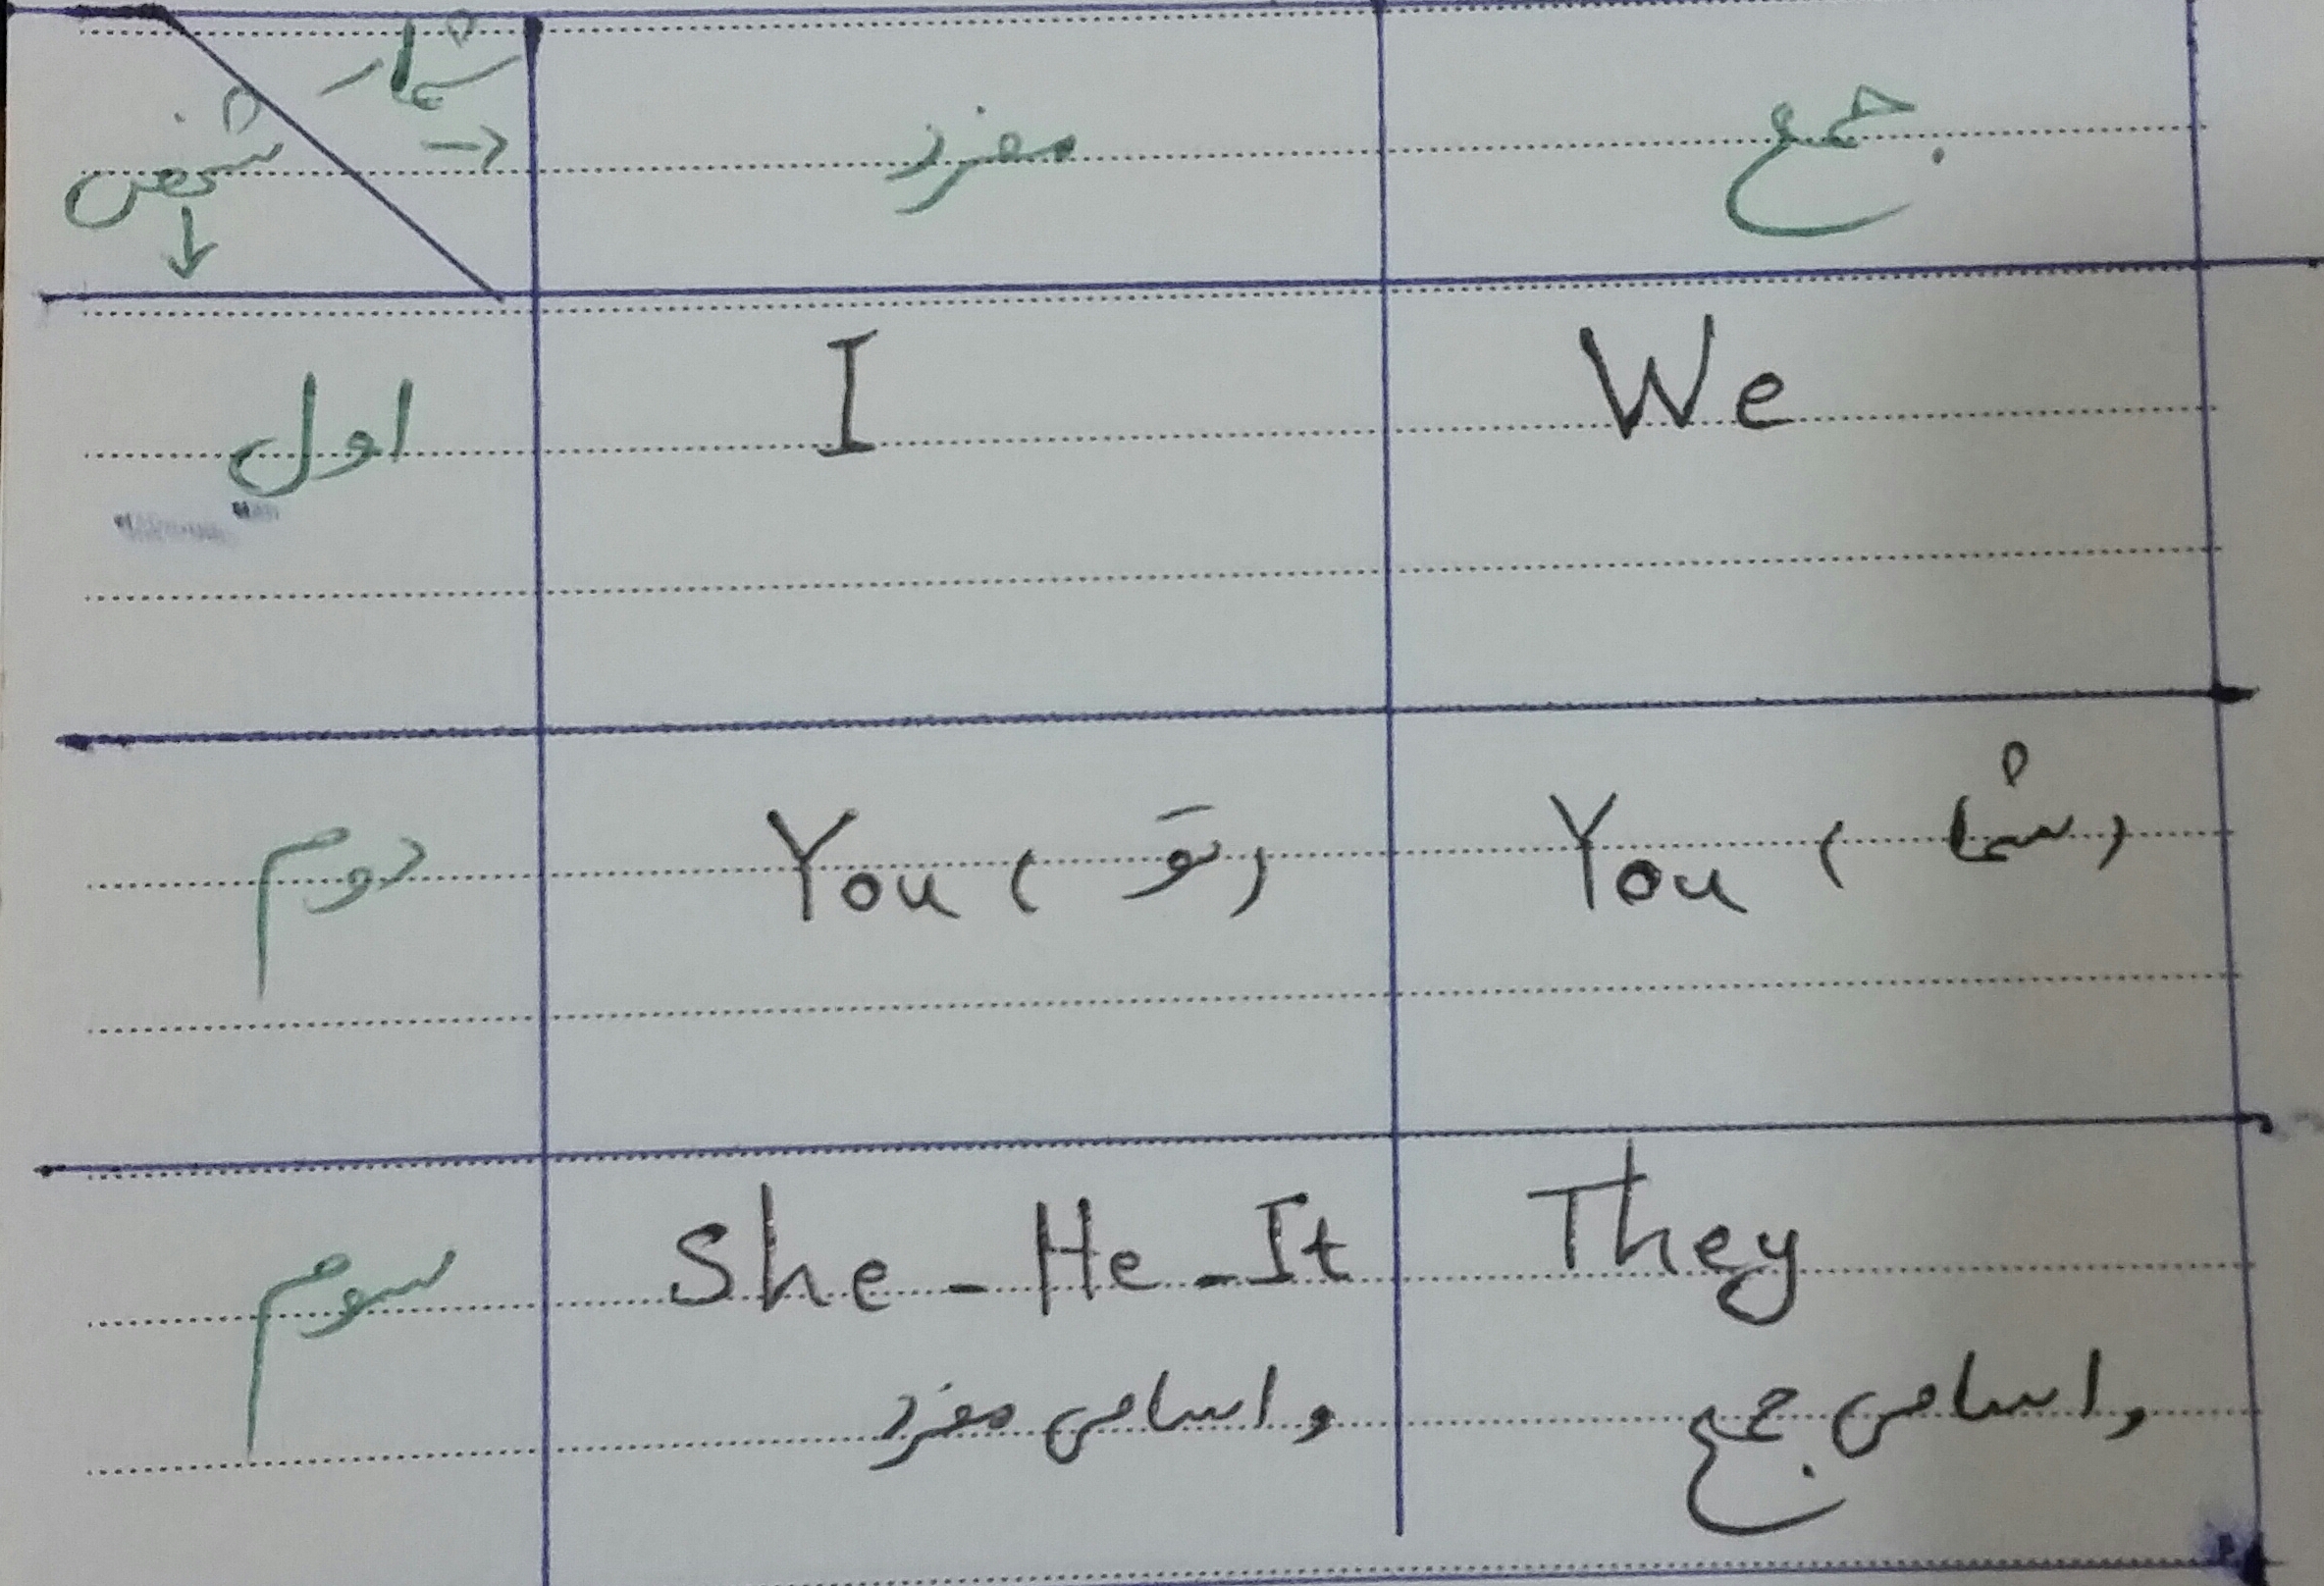 شمار →
شخص ↓
مفرد
جمع
اول
I
We
دوم
You (تو)
You (شما)
سوم
She - He - It
They
و اسامی مفرد
و اسامی جمع